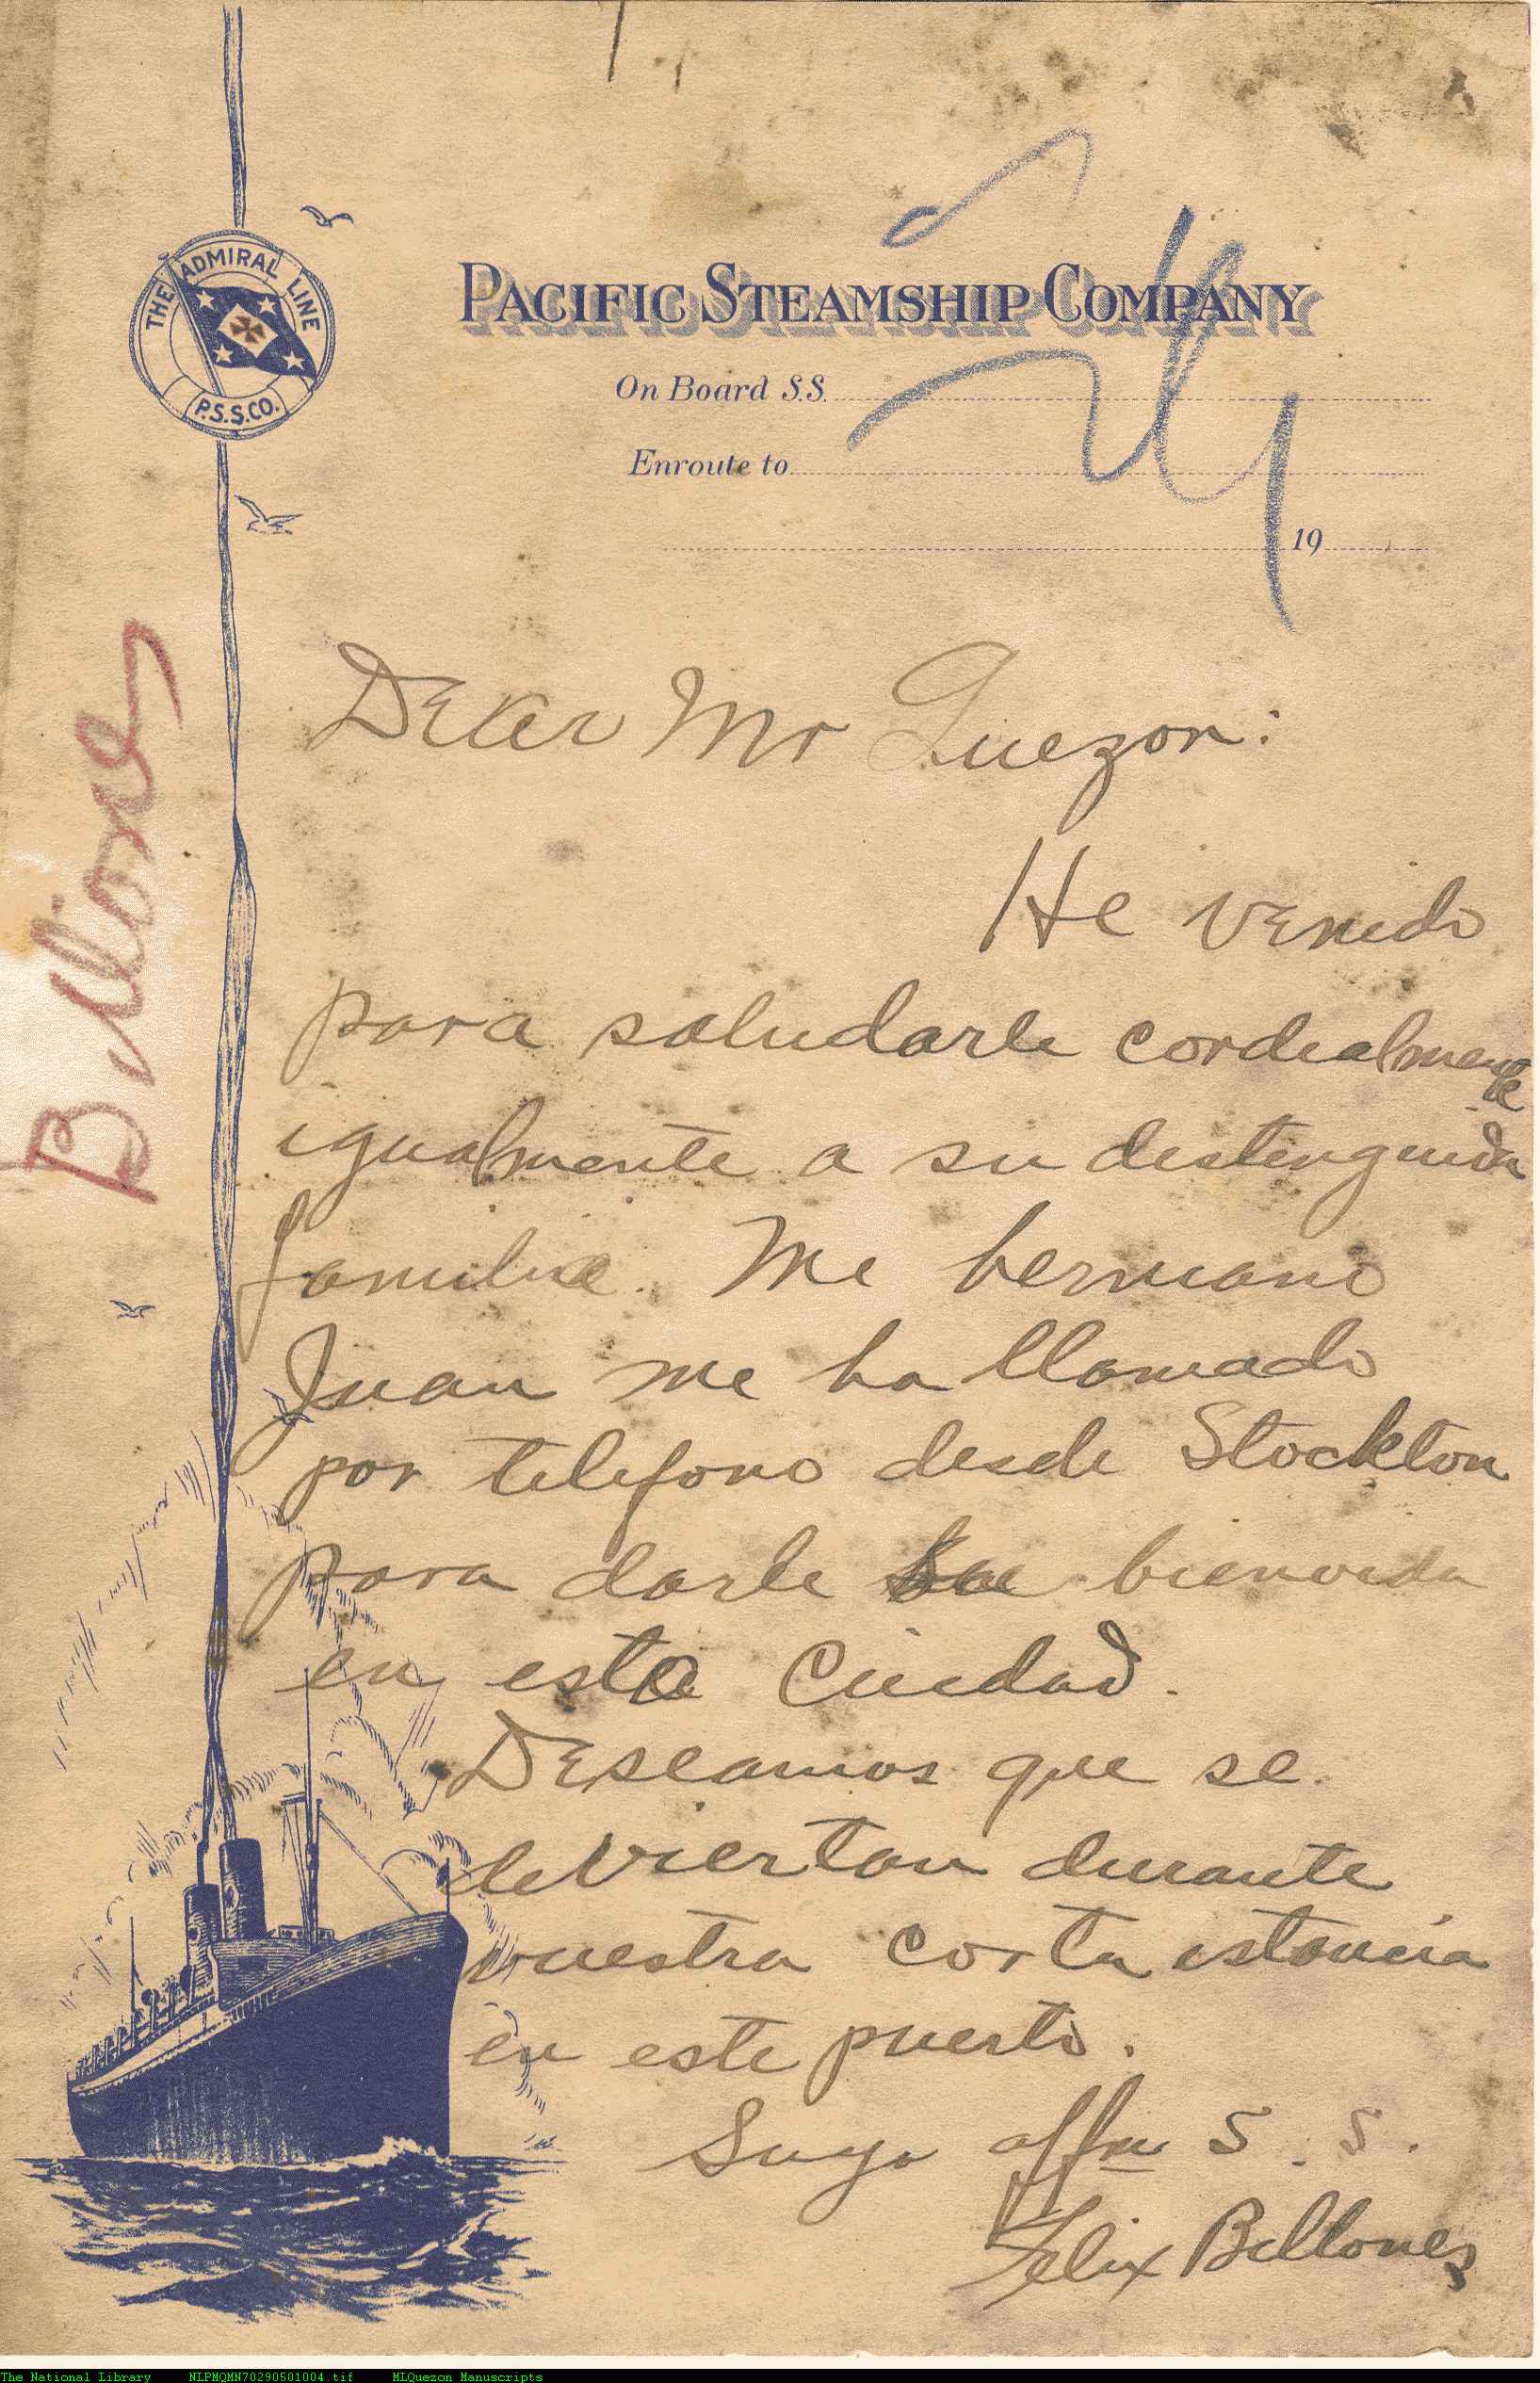 THE ADMIRAL LINE
P.S.S.CO.
PACIFIC STEAMSHIP COMPANY
On Board S.S.
Enroute to
19
Billones
Dear Mr Quezon:
He venido
para saludarle cordialmente
igualmente a su distinguida
familia. Mi hermano
Juan me ha llamado
por telefono desde Stockton
para darle bienvenida
en esta Ciudad.
Deseamos que se
deviertan durante
vuestra corta estancia
en este puerto.
Suyo affmo S. S.
Felix Billones
The National Library NLPMQMN70290501004.tif MLQuezon Manuscripts